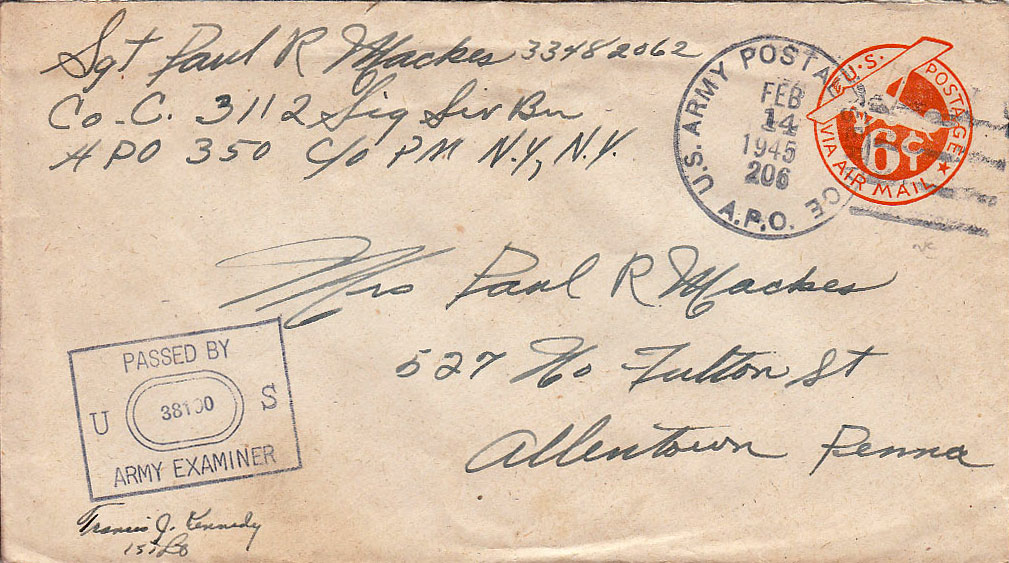 Sgt Paul R Mackes 33482062
Co-C. 3112 Sig Siv Bn
APO 350 C/o PM N.Y, N.Y.
U.S. ARMY POSTAL
FEB
14
1945
206
A.P.O.
U.S. POSTAGE
6¢
VIA AIR MAIL
Mrs Paul R Mackes
527 No Fulton St
Allentown Penna
PASSED BY
U 38100 S
ARMY EXAMINER
Francis J. Kennedy
1st Lt